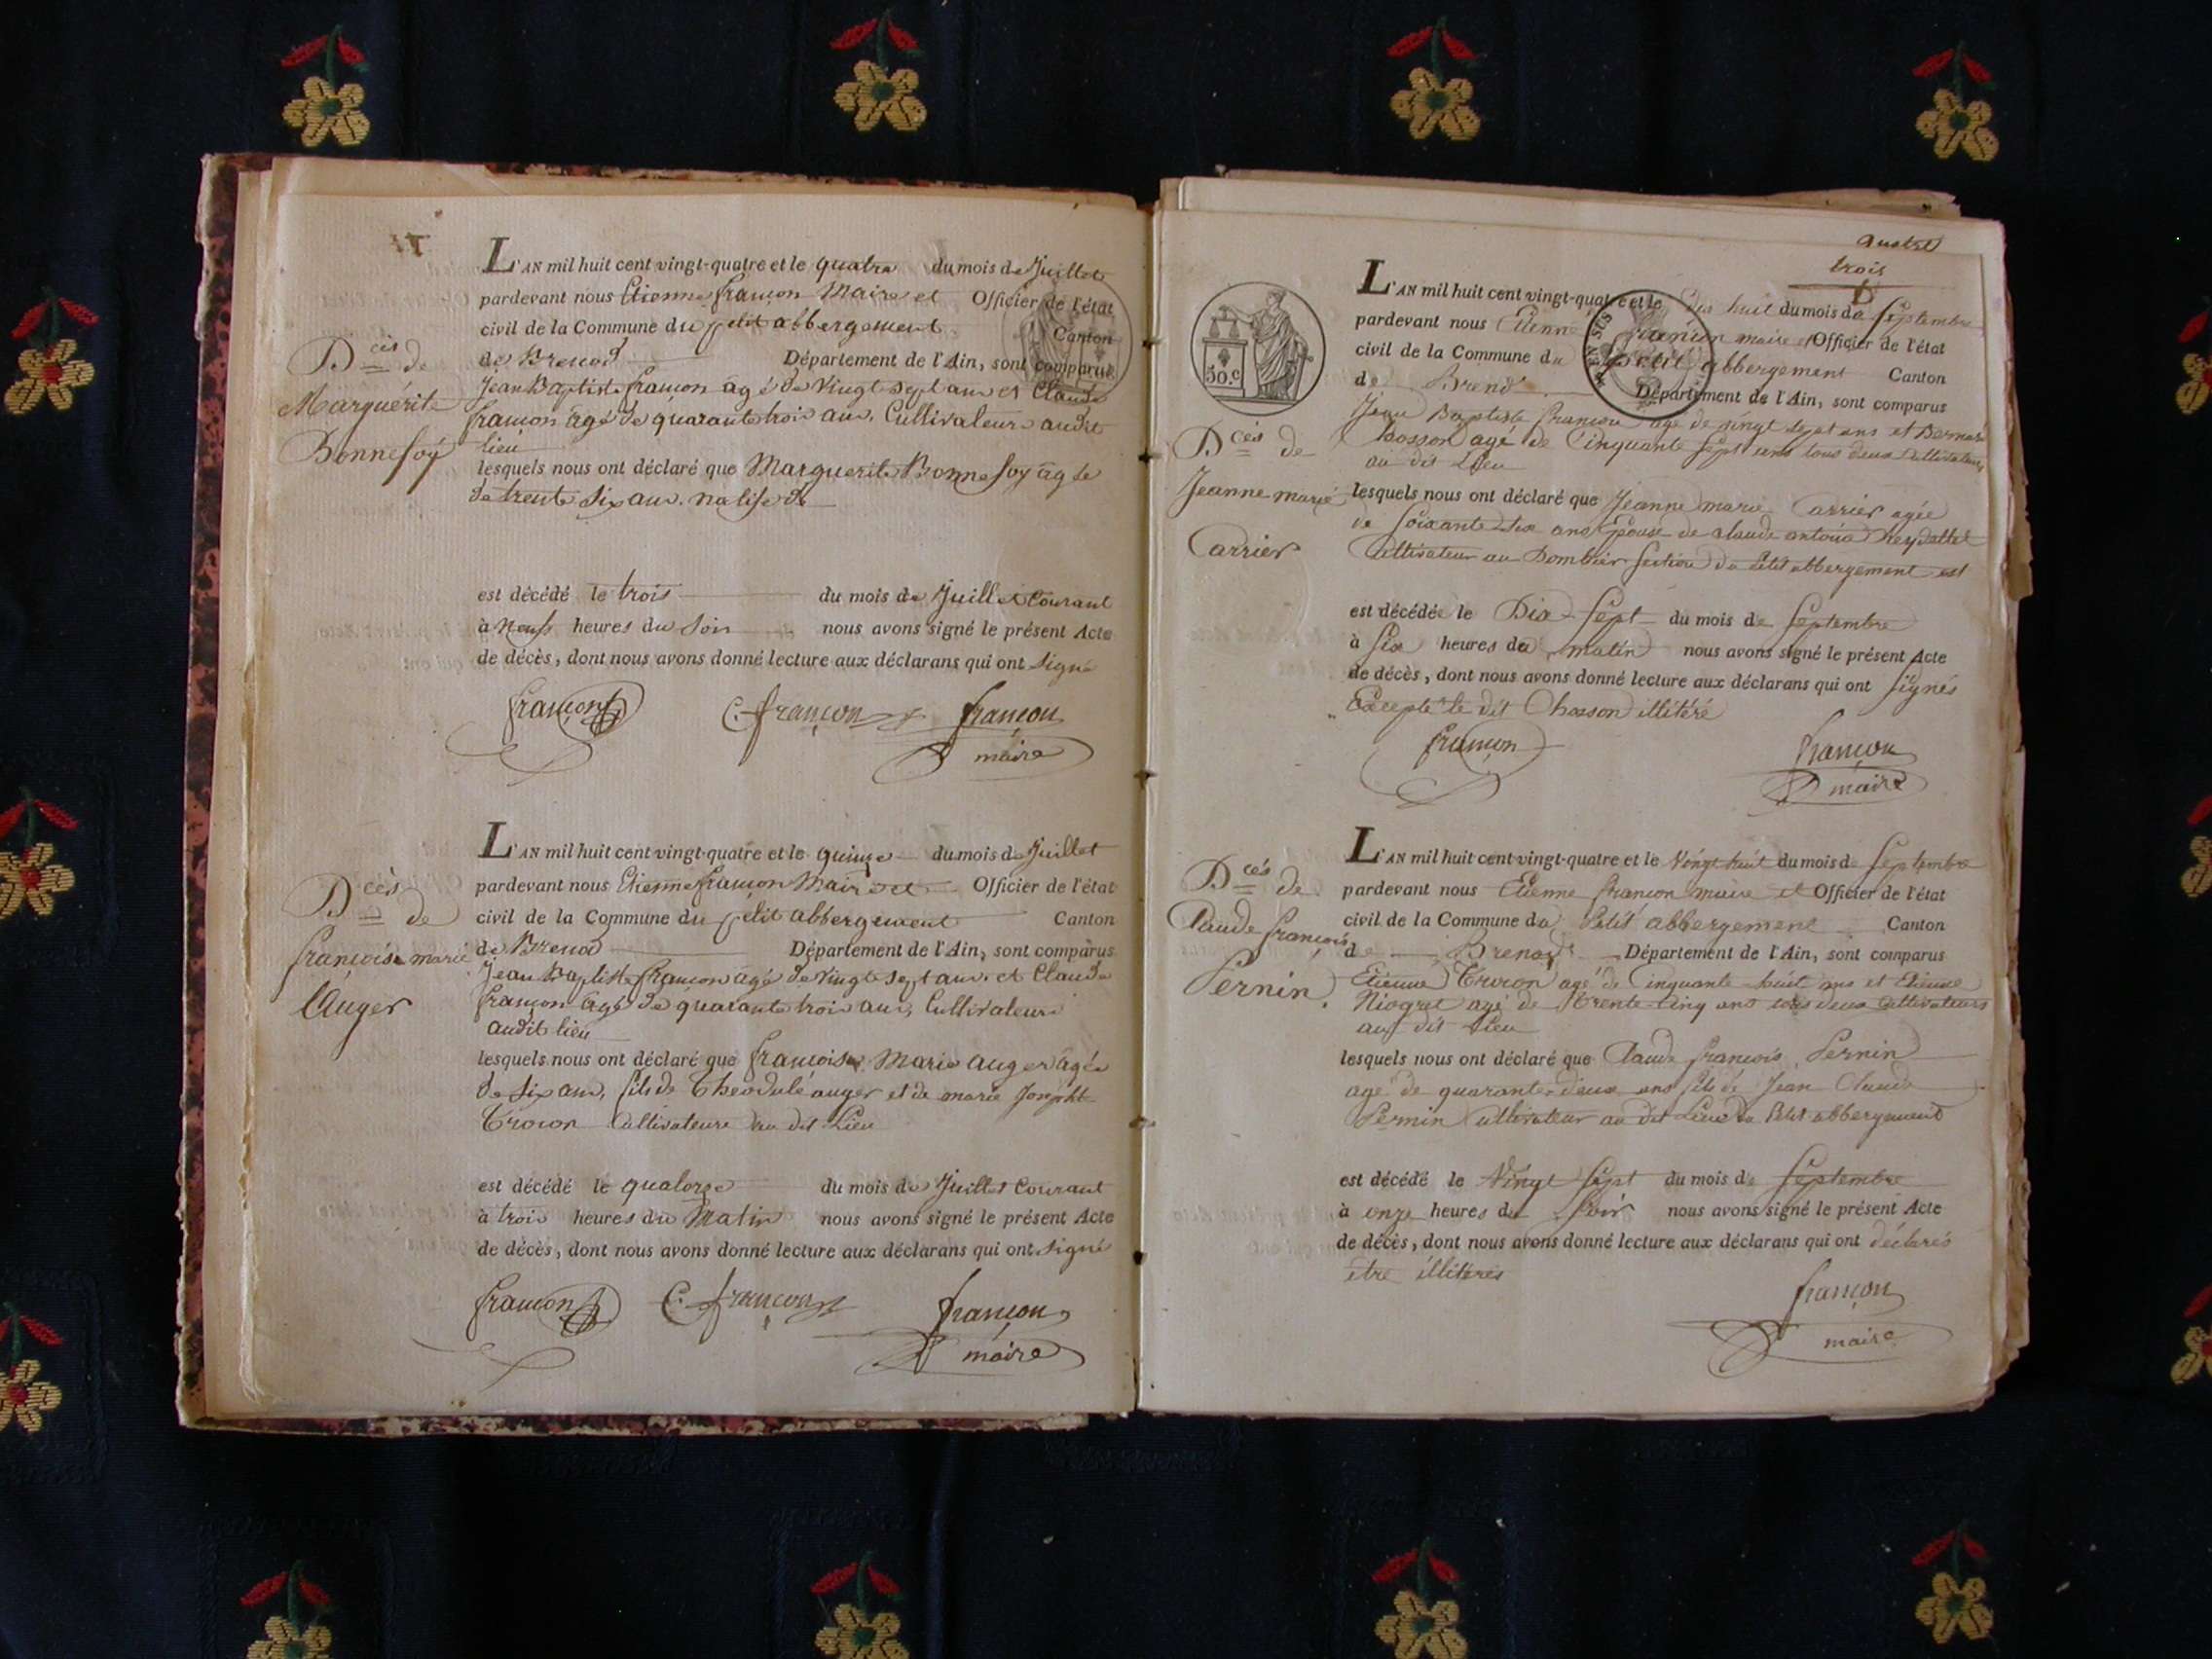 L'AN mil huit cent vingt-quatre et le quatre du mois de Juillet
pardevant nous Etienne françon Maire et Officier de l'état
civil de la Commune du petit abbergement Canton
de Brenod Département de l'Ain, sont comparus
Jean Baptiste françon âgé de Vingt sept ans et Claude
françon âgé de quarante trois ans, Cultivateurs audit
lieu
Dcès de
Marguérite
Bonnefoÿ
lesquels nous ont déclaré que Marguerite Bonnefoy âgée
de trente six ans. native de
est décédé le trois du mois de Juillet Courant
à Neuf heures du Soir nous avons signé le présent Acte
de décès, dont nous avons donné lecture aux déclarans qui ont Signé
françon C. françon françon
maire
L'AN mil huit cent vingt-quatre et le quinze du mois de Juillet
pardevant nous Etienne françon Maire et Officier de l'état
civil de la Commune du petit abbergement Canton
de Brenod Département de l'Ain, sont comparus
Jean Baptiste françon âgé de Vingt sept ans et Claude
françon âgé de quarante trois ans, Cultivateurs
audit lieu
Dcès de
françoise marie
Auger
lesquels nous ont déclaré que françoise Marie auger âgée
de six ans, fils de Theodule auger et de marie Josephte
Trocon Cultivateurs au dit Lieu
est décédé le quatorze du mois de Juillet Courant
à trois heures du Matin nous avons signé le présent Acte
de décès, dont nous avons donné lecture aux déclarans qui ont Signé
françon C. françon françon
maire
trois
L'AN mil huit cent vingt-quatre et le dix huit du mois de Septembre
pardevant nous Etienne françon maire et Officier de l'état
civil de la Commune du petit abbergement Canton
de Brenod Département de l'Ain, sont comparus
Jean Baptiste françon agé de vingt sept ans et Bernard
Chosson agé de Cinquante sept ans tous deux Cultivateurs
au dit Lieu
50.c
EN SUS
Dcès de
Jeanne marie
Carrier
lesquels nous ont déclaré que Jeanne marie Carrier agée
de Soixante six ans Epouse de Claude antoine
Cultivateur au Section du Petit abbergement est
est décédée le Dix-Sept du mois de Septembre
à Six heures du matin nous avons signé le présent Acte
de décès, dont nous avons donné lecture aux déclarans qui ont Signés
Excepté le dit Chosson illitéré
françon françon
maire
L'AN mil huit cent vingt-quatre et le Vingt huit du mois de Septembre
pardevant nous Etienne françon maire et Officier de l'état
civil de la Commune du Petit abbergement Canton
de Brenod Département de l'Ain, sont comparus
Etienne Trocon agé de Cinquante huit ans et Etienne
Niogret agé de Trente Cinq ans tous deux Cultivateurs
au dit Lieu
Dcès de
Claude françois
Pernin.
lesquels nous ont déclaré que Claude françois Pernin
agé de quarante-deux ans fils de Jean Claude
Pernin Cultivateur au dit Lieu du Petit abbergement
est décédé le Vingt Sept du mois de Septembre
à onze heures du Soir nous avons signé le présent Acte
de décès, dont nous avons donné lecture aux déclarans qui ont déclarés
etre illitérés
françon
maire